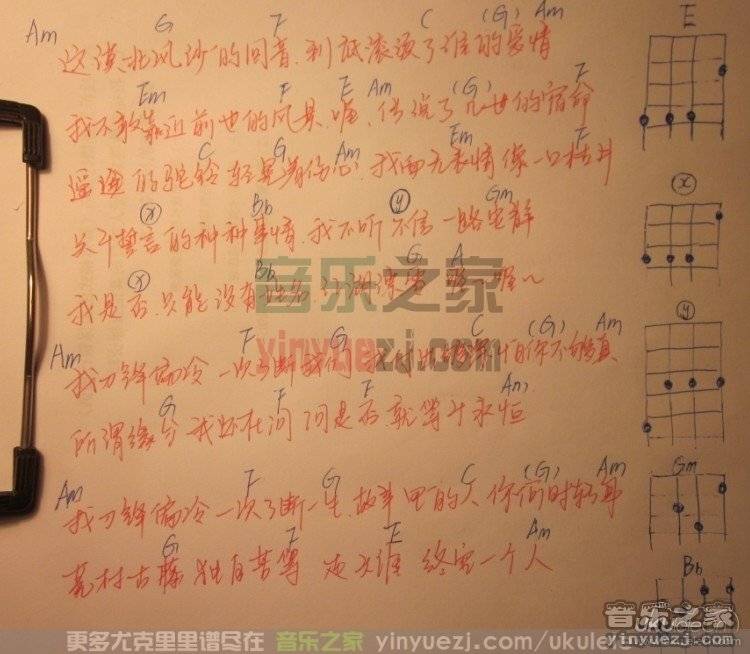 Am G F C (G) Am E
这漠北风沙的回音 到底滚烫了谁的爱情
Em F E Am (G) F
我不敢靠近前世的风景 喔 传说了几世的宿命
C G Am Em F
遥远的驼铃 轻晃着伤心 我面无表情像一口枯井
ⓧ Bb ⓨ Gm ⓧ
关于誓言的种种事情 我不听不信一路安静
ⓧ Bb G A
我是否只能没有姓名
音乐之家
xinyuezj.com
ⓨ
Am F G C (G) Am
我刀锋偏冷 一次了断
G F F Am
所谓缘分 我还在问 问是否就等于永恒
Am F G C (G) Am Gm
我刀锋偏冷 一次了断一生 故事里的人 你何时转身
G F E Am Bb
荒村古藤 独自苦等 走天涯 终究一个人
音乐之家
yinyuezj.com
更多尤克里里谱尽在 音乐之家 yinyuezj.com/ukulele